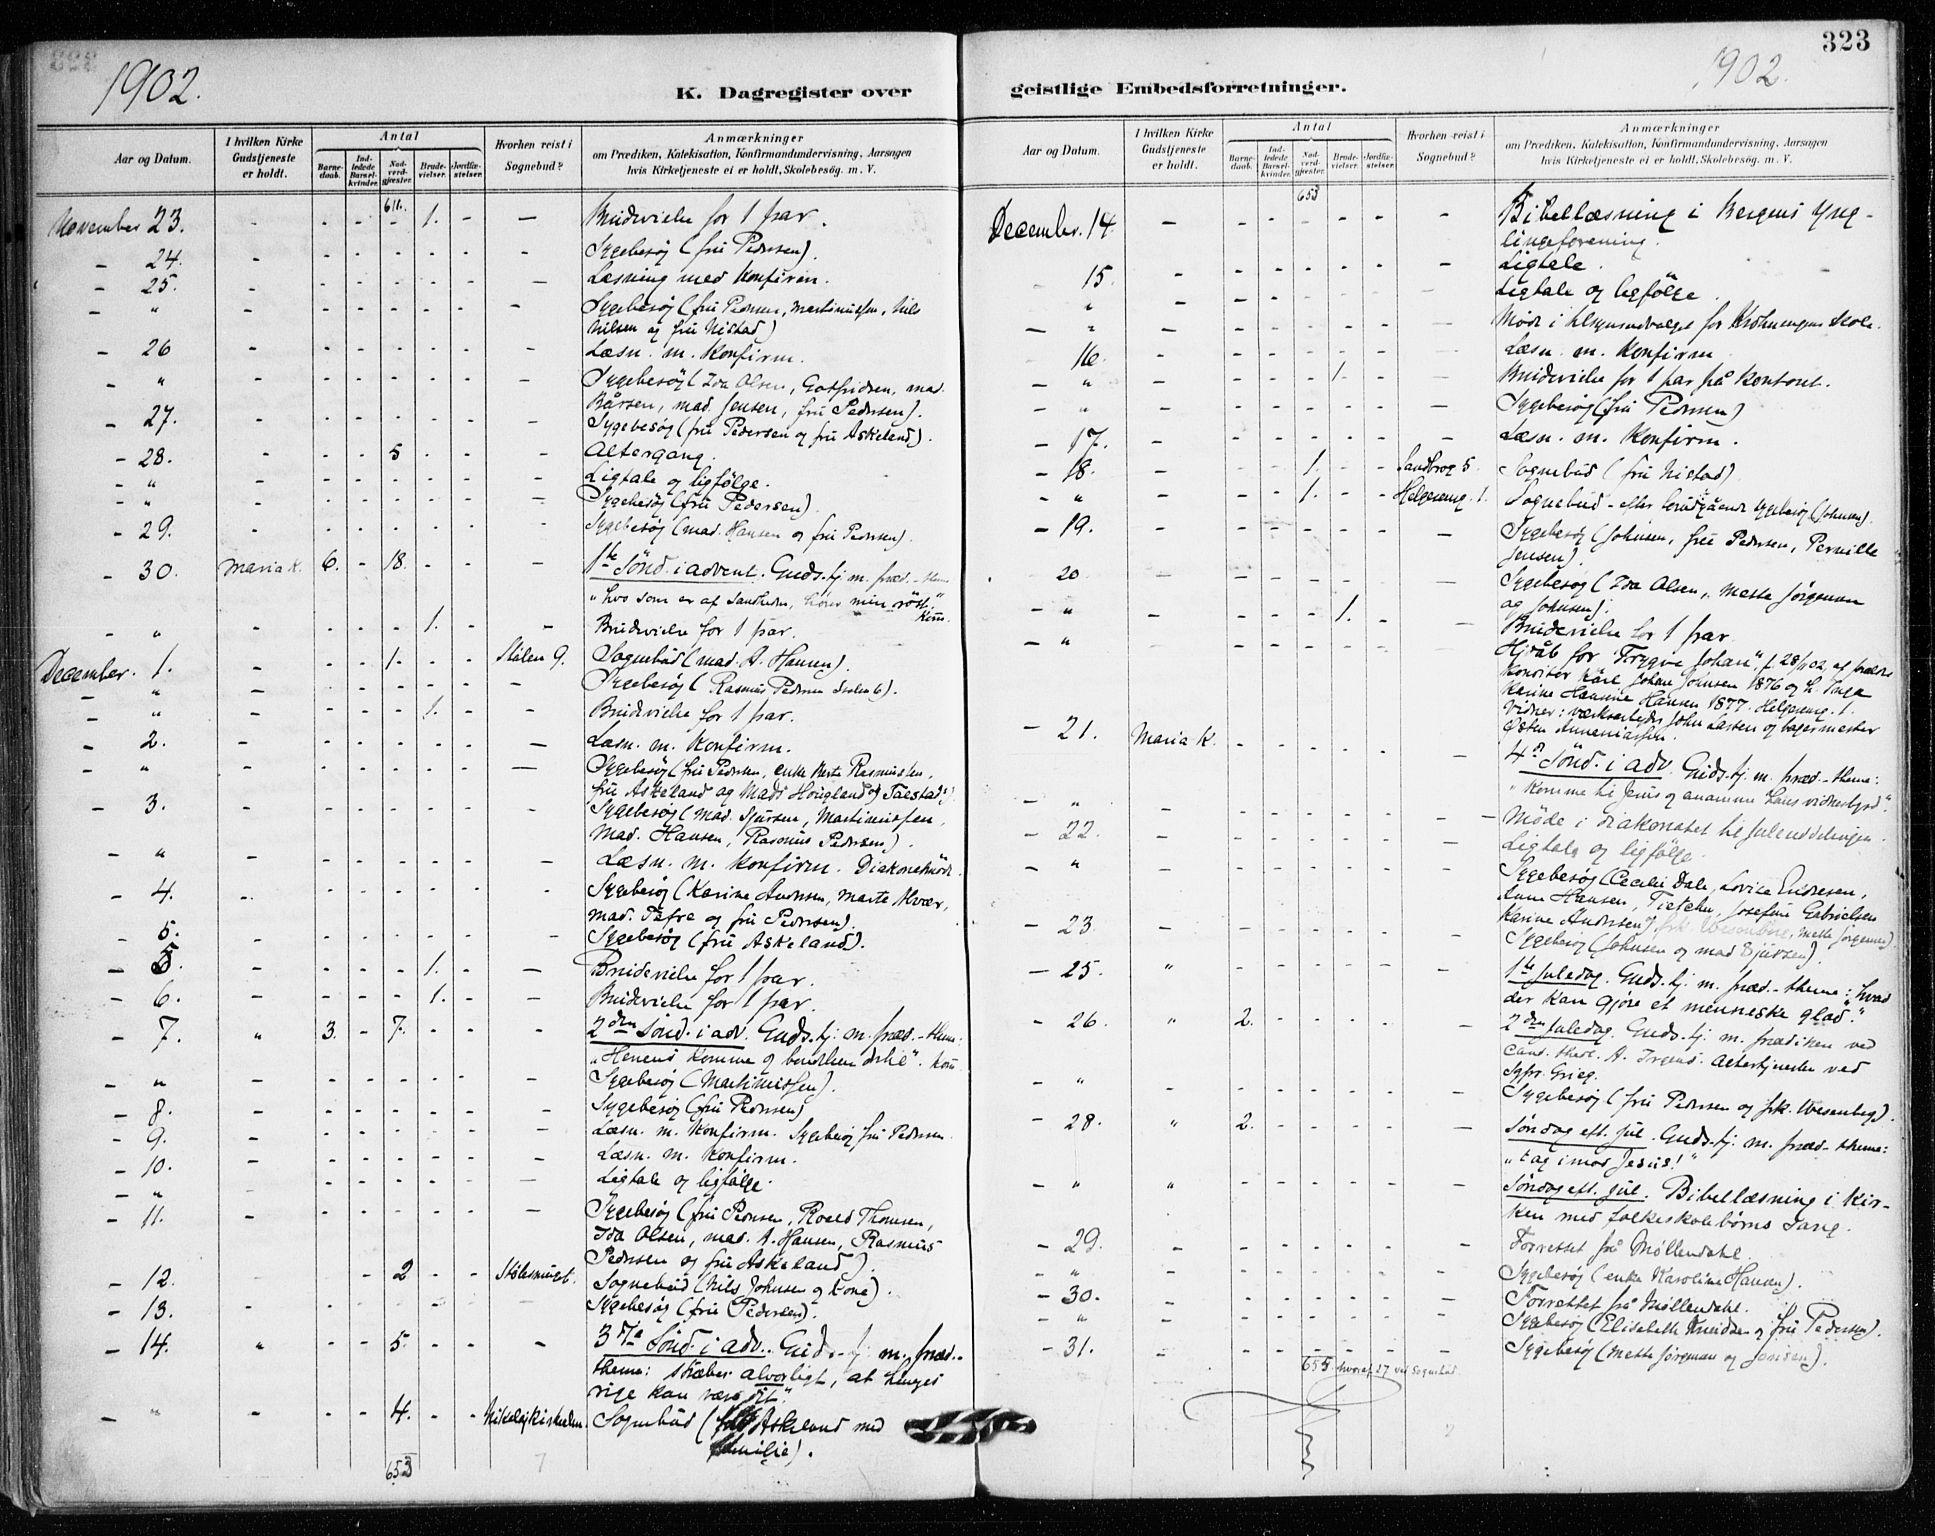 323
1902.
1902.
K. Dagregister over
geistlige Embedsforretninger.
Aar og Datum. I hvilken Kirke Gudstjeneste er holdt. Antal Barnedaab. Indledede Barselkvinder. Nadverdgjæster. Brudevielser. Jordfæstelser. Hvorhen reist i Sognebud? Anmærkninger
om Prædiken, Katekisation, Konfirmandundervisning, Aarsagen
hvis Kirketjeneste ei er holdt, Skolebesøg. m. V.
616.
November 23. - - - - 1. - - Brudevielse for 1 par.
- 24. Sygebesøg (fru Pedersen).
- 25. Læsning med Konfirm.
- " Sygebesøg (fru Pedersen, Martinussen, Nils
Nilsen og fru Nistad)
- 26 Læsn. m. Konfirm.
- " Sygebesøg (Ida Olsen, Gotfredsen, mad.
Bårsen, mad. Jensen, fru Pedersen).
- 27. Sygebesøg (fru Pedersen og fru Askeland).
- 28. 5 Altergang.
- " Ligtale og ligfølge.
- " Sygebesøg (fru Pedersen).
- 29. Sygebesøg (mad. Hansen og fru Pedersen).
- 30. Maria K. 6. - 18. 1ste Sønd. i advent. Guds.tj. m. præd. - thema
"hvo som er af sandheden, hører min røst."
- " 1. Brudevielse for 1 par.
December. 1. 1. Stølen 9. Sognebud (mad. A. Hansen).
- " Sygebesøg (Rasmus Pedersen 6).
- " 1. Brudevielse for 1 par.
- 2. Læsn. m. Konfirm.
- " Sygebesøg (fru Pedersen, enke Rasmussen,
fru Askeland og Mads Hougland
- 3. Sygebesøg (mad. Sjursen, Martinussen,
mad. Hansen, Rasmus Pedersen).
- " Læsn. m. Konfirm.
- 4. Sygebesøg (Karine Andersen, Marte
mad. og fru Pedersen).
- 5. Sygebesøg (fru Askeland).
- 5. 1. Brudevielse for 1 par.
- 6. 1. Brudevielse for 1 par.
- 7. " 3. - 7. 2den Sønd. i adv. Guds.tj. m. præd. - thema:
"Herrens komme og
- " Sygebesøg (Martinussen).
- 8. Sygebesøg (fru Pedersen)
- 9. Læsn. m. Konfirm. Sygebesøg fru Pedersen.
- 10. Læsn. m. Konfirm.
- " Ligtale og ligfølge.
- 11. Sygebesøg (fru Pedersen, Roald Thomsen,
Ida Olsen, mad. A. Hansen, Rasmus
Pedersen og fru Askeland).
- 12. 2 Stølesmuget. Sognebud (Nils Johnsen og kone).
- 13. Sygebesøg (fru Pedersen).
- 14. " 5. 3die Sønd. i adv. Guds.tj. m. præd. -
thema: stræber alvorligt, at Herrens
rige kan være
- " 4. Nikolaikirkealm. Sognebud (fru Askeland med
familie).
653
Aar og Datum. I hvilken Kirke Gudstjeneste er holdt. Antal Barnedaab. Indledede Barselkvinder. Nadverdgjæster. Brudevielser. Jordfæstelser. Hvorhen reist i Sognebud? Anmærkninger
om Prædiken, Katekisation, Konfirmandundervisning, Aarsagen
hvis Kirketjeneste ei er holdt, Skolebesøg. m. V.
653
December. 14. Bibellæsning i Bergens Yng-
lingeforening.
15. Ligtale.
" Ligtale og ligfølge.
- " Møde i tilsynsudvalget for Krohnengens Skole.
16. Læsn. m. Konfirm
- " 1. Brudevielse for 1 par på kontoret.
- " Sygebesøg (fru Pedersen)
- 17. Læsn. m. Konfirm.
- 18. 1. Sandbrog 5. Sognebud (fru Nistad)
- " 1. Helgeseng. 1. Sognebud - efter forudgående sygebesøg (Johnsen).
- 19. Sygebesøg (Johnsen, fru Pedersen, Pernille
Jensen).
20 Sygebesøg (Ida Olsen, Mette Jørgensen
og Johnsen).
- " 1. Brudevielse for 1 par
- " Hj.dåb for "Trygve Johan", f. 28/ 02 af
Karl Johan Johnsen 1876 og h. Inga
Karine Hansine Hansen 1877. Helgeseng. 1.
Vidner: værksarbeider John Larsen og bagermester
Østen
- 21. Maria K. 4de Sønd. i adv. Guds.tj. m. præd. - thema:
"komme til Jesus og annamme hans vidnesbyrd."
- " Møde i diakonatet til juleuddelingen.
- 22. Ligtale og ligfølge.
- " Sygebesøg (Cecilie Dale, Lovise Endresen,
Anne Hansen, Josefine Gabrielsen
Karine Andersen, frk. Wesenberg, Mette Jørgensen).
- 23. Sygebesøg (Johnsen og mad Sjursen).
- 25. " 1ste Juledag. Guds.tj. m. præd. - thema: "hvad
der kan gjøre et menneske glad."
- 26. " 2. 2den Juledag. Guds.tj. m. prædiken ved
cand. theol. A. Irgens. Altertjenesten ved
Grieg.
- " Sygebesøg (fru Pedersen og frk. Wesenberg).
- 28. " 2. Søndag eft. jul. Guds.tj. m. præd. - thema:
"tag imod Jesus!"
- " " Søndag eft. jul. Bibellæsning i Kir-
ken med folkeskolebørns sang.
- 29. Forrettet på Møllendahl.
- " Sygebesøg (enke Karoline Hansen).
- 30. Forrettet på Møllendahl.
- " Sygebesøg (Elisabeth og fru Pedersen).
- 31. Sygebesøg (Mette Jørgensen og Jensen).
655 hvoraf 27 ved Sognebud